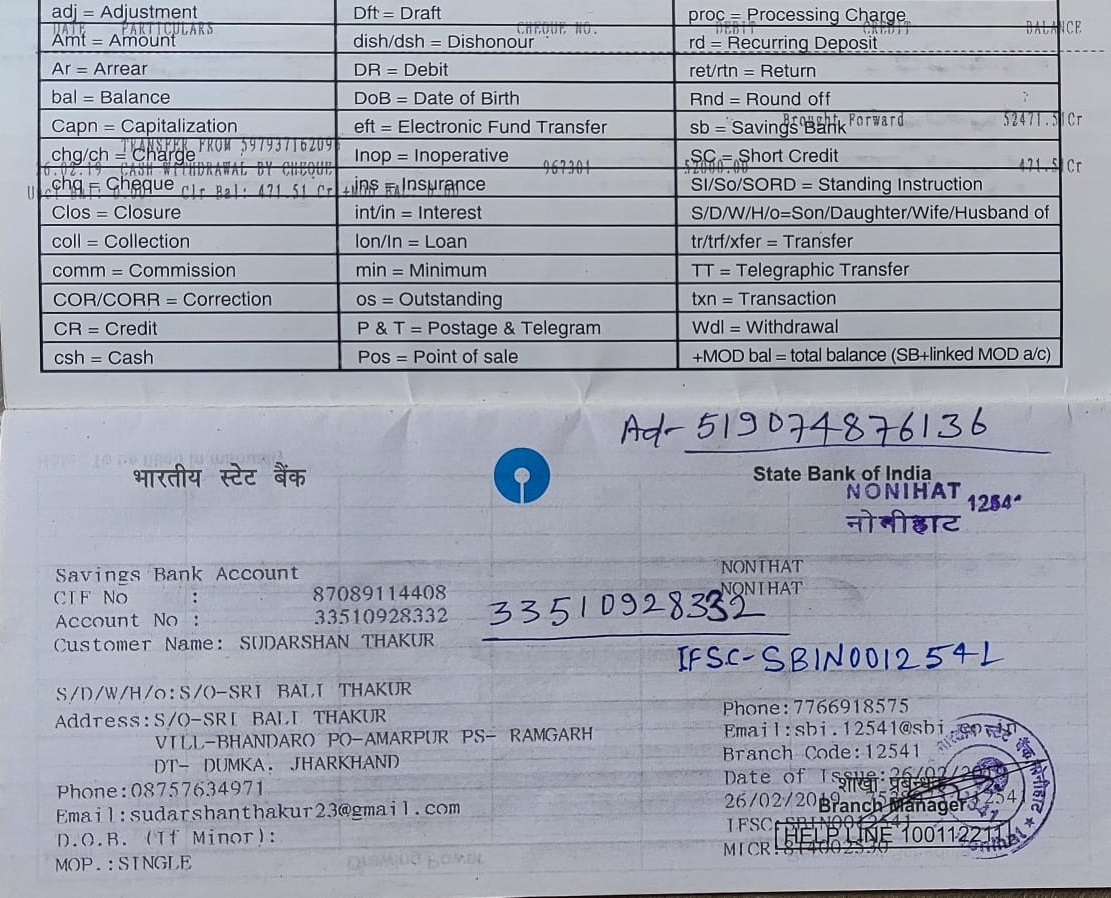 adj = Adjustment Dft = Draft proc = Processing Charge
DATE PARTICULARS CHEQUE NO. DEBIT CREDIT BALANCE
Amt = Amount dish/dsh = Dishonour rd = Recurring Deposit
Ar = Arrear DR = Debit ret/rtn = Return
bal = Balance DoB = Date of Birth Rnd = Round off
Brought Forward 52471.51Cr
Capn = Capitalization eft = Electronic Fund Transfer sb = Savings Bank
TRANSFER FROM 59793716209
chg/ch = Charge Inop = Inoperative SC = Short Credit
16.02.19 CASH WITHDRAWAL BY CHEQUE 967301 52000.00 471.51Cr
chq = Cheque ins = Insurance SI/So/SORD = Standing Instruction
Clr Bal: 471.51 Cr
Clos = Closure int/in = Interest S/D/W/H/o=Son/Daughter/Wife/Husband of
coll = Collection lon/ln = Loan tr/trf/xfer = Transfer
comm = Commission min = Minimum TT = Telegraphic Transfer
COR/CORR = Correction os = Outstanding txn = Transaction
CR = Credit P & T = Postage & Telegram Wdl = Withdrawal
csh = Cash Pos = Point of sale +MOD bal = total balance (SB+linked MOD a/c)
Ad- 519074876136
भारतीय स्टेट बैंक State Bank of India
NONIHAT 1254
नोनीहाट
Savings Bank Account NONIHAT
CIF No : 87089114408 NONIHAT
Account No : 33510928332 33510928332
Customer Name: SUDARSHAN THAKUR
IFSC-SBIN0012541
S/D/W/H/o:S/O-SRI BALI THAKUR
Address:S/O-SRI BALI THAKUR Phone:7766918575
VILL-BHANDARO PO-AMARPUR PS- RAMGARH Email:sbi.12541@sbi
DT- DUMKA. JHARKHAND Branch Code:12541
Phone:08757634971 Date of Issue:26/02/2019
शाखा प्रबन्धक
Email:sudarshanthakur23@gmail.com 26/02/2019 Branch Manager
D.O.B. (If Minor): IFSC:SBIN0012541
HELP LINE 1001122111
MOP.:SINGLE MICR:814002530